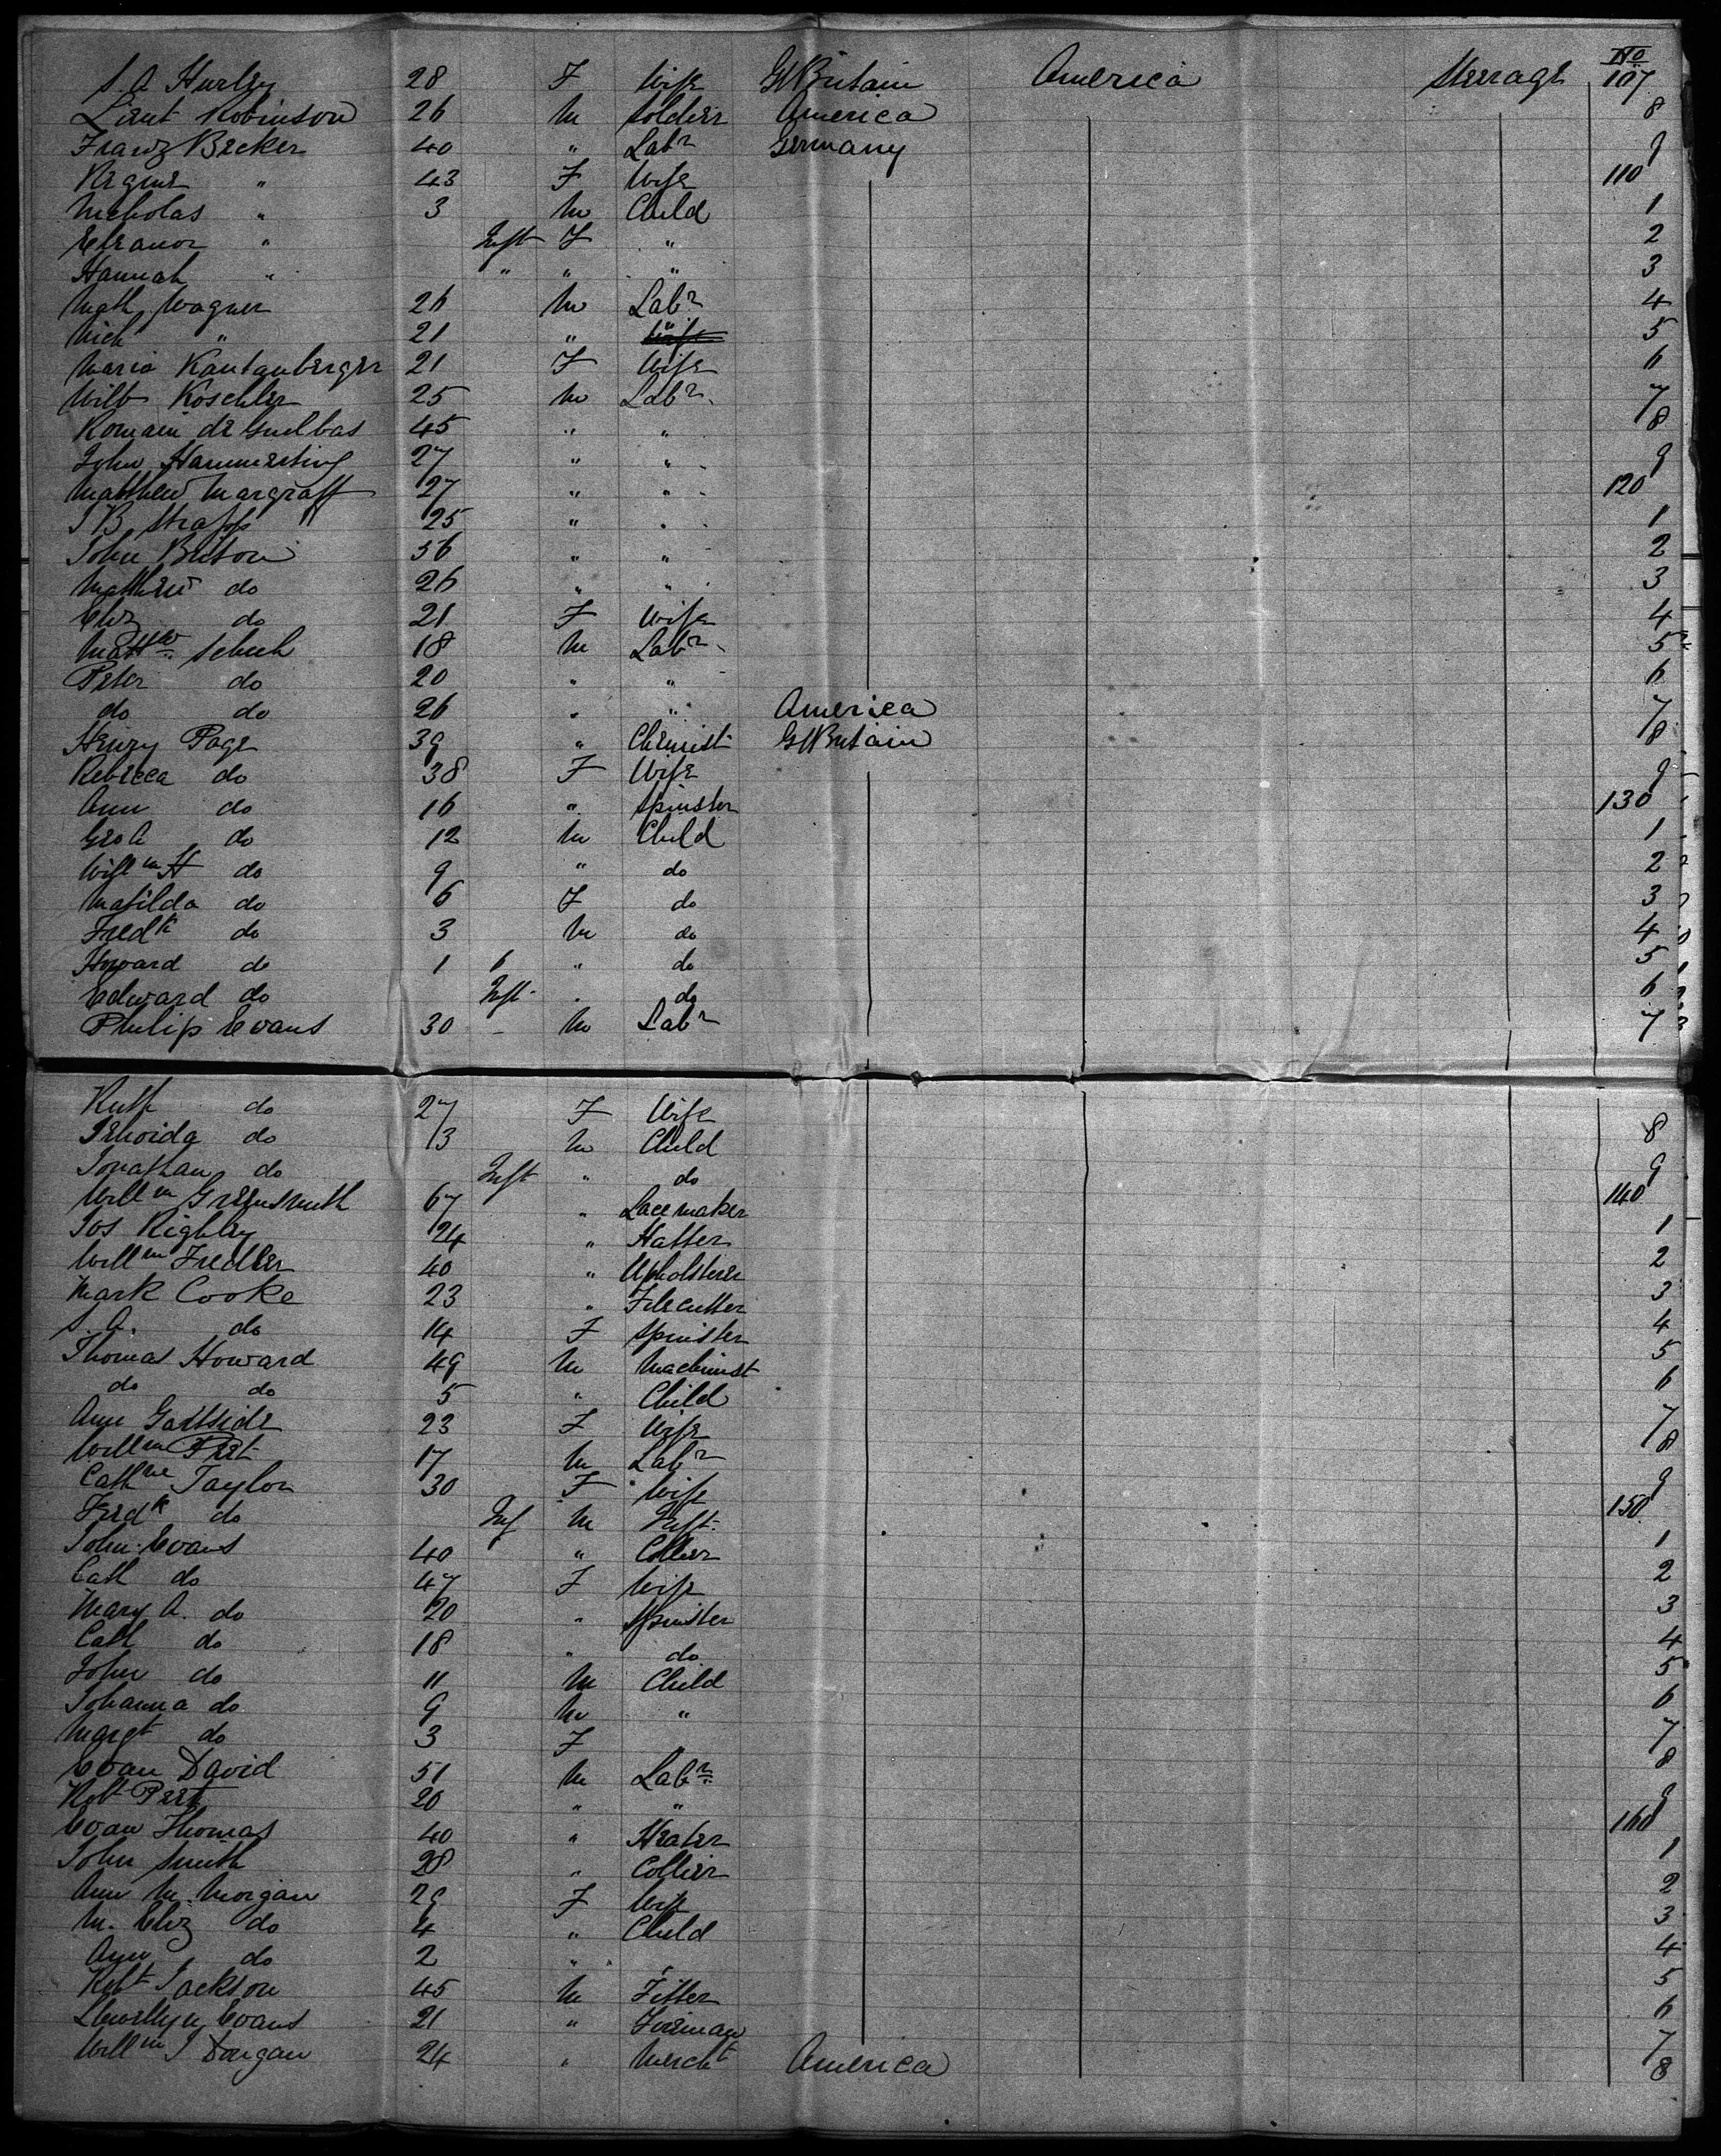 No
S. A Hurley 28 F Wife Gt Britain America Steerage 107
Lieut Robinson 26 M Soldier America 8
Franz Becker 40 " Labr Germany 9
Regine " 43 F Wife 110
Nicholas " 3 M Child 1
Eleanor " Inft F " 2
Hannah " " " " 3
Math Wagner 26 M Labr 4
Nich " 21 " " 5
Maria Kautenberger 21 F Wife 6
Wilb Koschler 25 M Labr 7
Romain de 45 " " 8
John Hammerting 27 " " 9
Matthew Margraff 27 " " 120
J B Strapp 25 " " 1
John Briton 56 " " 2
Matthew do 26 " " 3
Eliz do 21 F Wife 4
Mattw Schuh 18 M Labr 5
Peter do 20 " " 6
do do 26 " " America 7
Henry Page 39 " Chemist Gt Britain 8
Rebecca do 38 F Wife 9
Ann do 16 " Spinster 130
Geo A do 12 M Child 1
Willm H do 9 " do 2
Matilda do 6 F do 3
Fredk do 3 M do 4
Howard do 1 6 " do 5
Edward do Inft " do 6
Philip Evans 30 - M Labr 7
Ruth do 27 F Wife 8
Jehoida do 13 M Child 9
Jonathan do Inft " do 140
Willm Greensmith 67 " Lace maker 1
Jos Rigbley 24 " Hatter 2
Willm Fredler 40 " Upholsterer 3
Mark Cooke 23 " Filecutter 4
S. A. do 14 F Spinster 5
Thomas Howard 49 M Machinist 6
do do 5 " Child 7
Ann Gartside 23 F Wife 8
Willm Peet 17 M Labr 9
Cathne Taylor 30 F Wife 150
Fredk do Inf M Inft. 1
John Evans 40 " Collier 2
Cath do 47 F Wife 3
Mary A. do 20 " Spinster 4
Cath do 18 " do 5
John do 11 M Child 6
Johanna do 9 M " 7
Margt do 3 F " 8
Evan David 51 M Labr 9
Robt Peet 20 " " 160
Evan Thomas 40 " Heater 1
John Smith 28 " Collier 2
Ann M. Morgan 29 F Wife 3
M. Eliz do 4 " Child 4
Ann do 2 " " 5
Robt Jackson 45 M Fitter 6
Llewellyn Evans 21 " Fireman 7
Willm J Dongan 24 " Mercht America 8